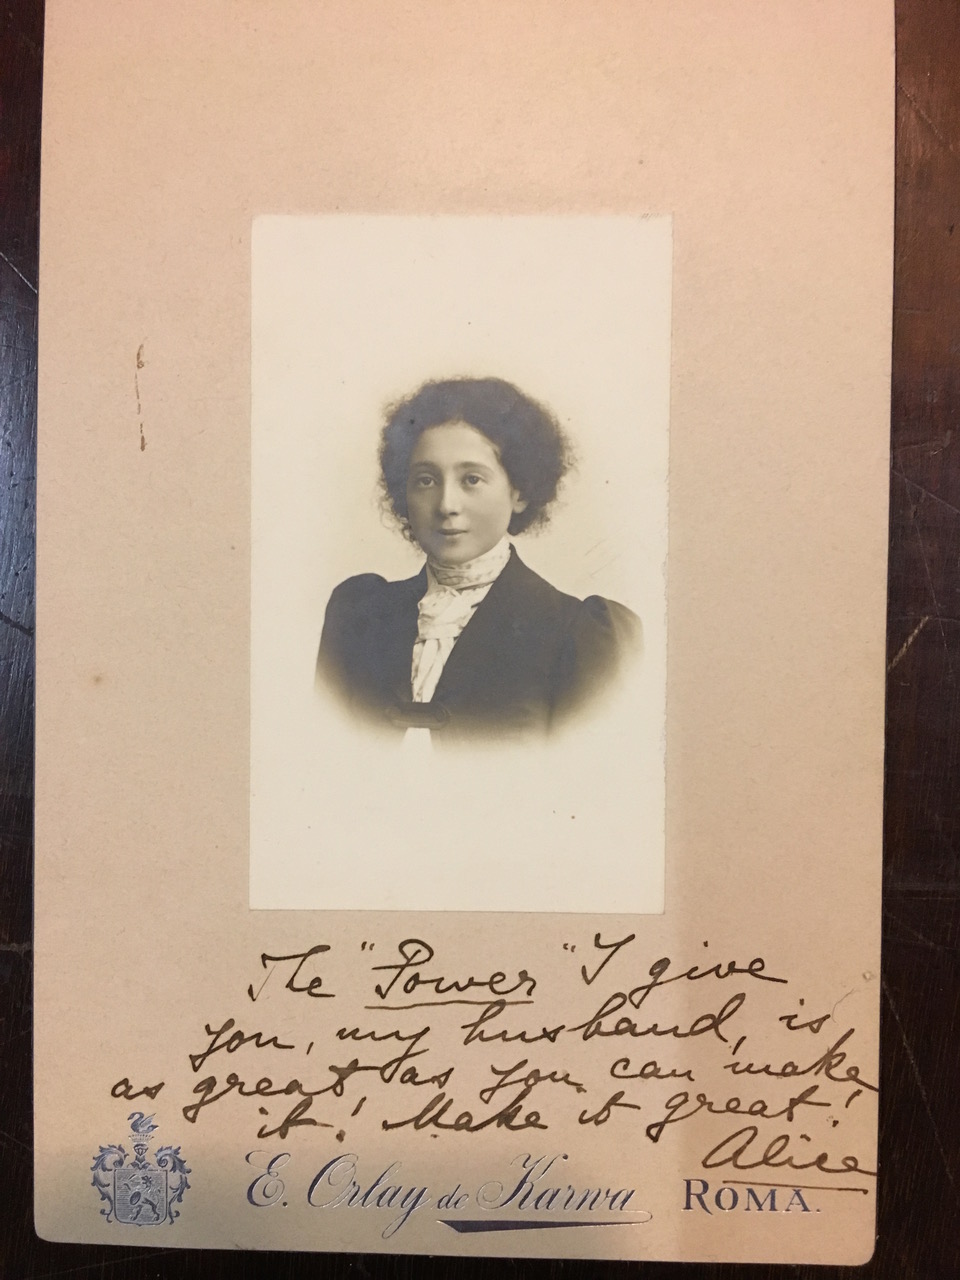 The "Power" I give
you, my husband, is
as great as you can make
it! Make it great!
Alice
E. Orlay de Karwa ROMA.